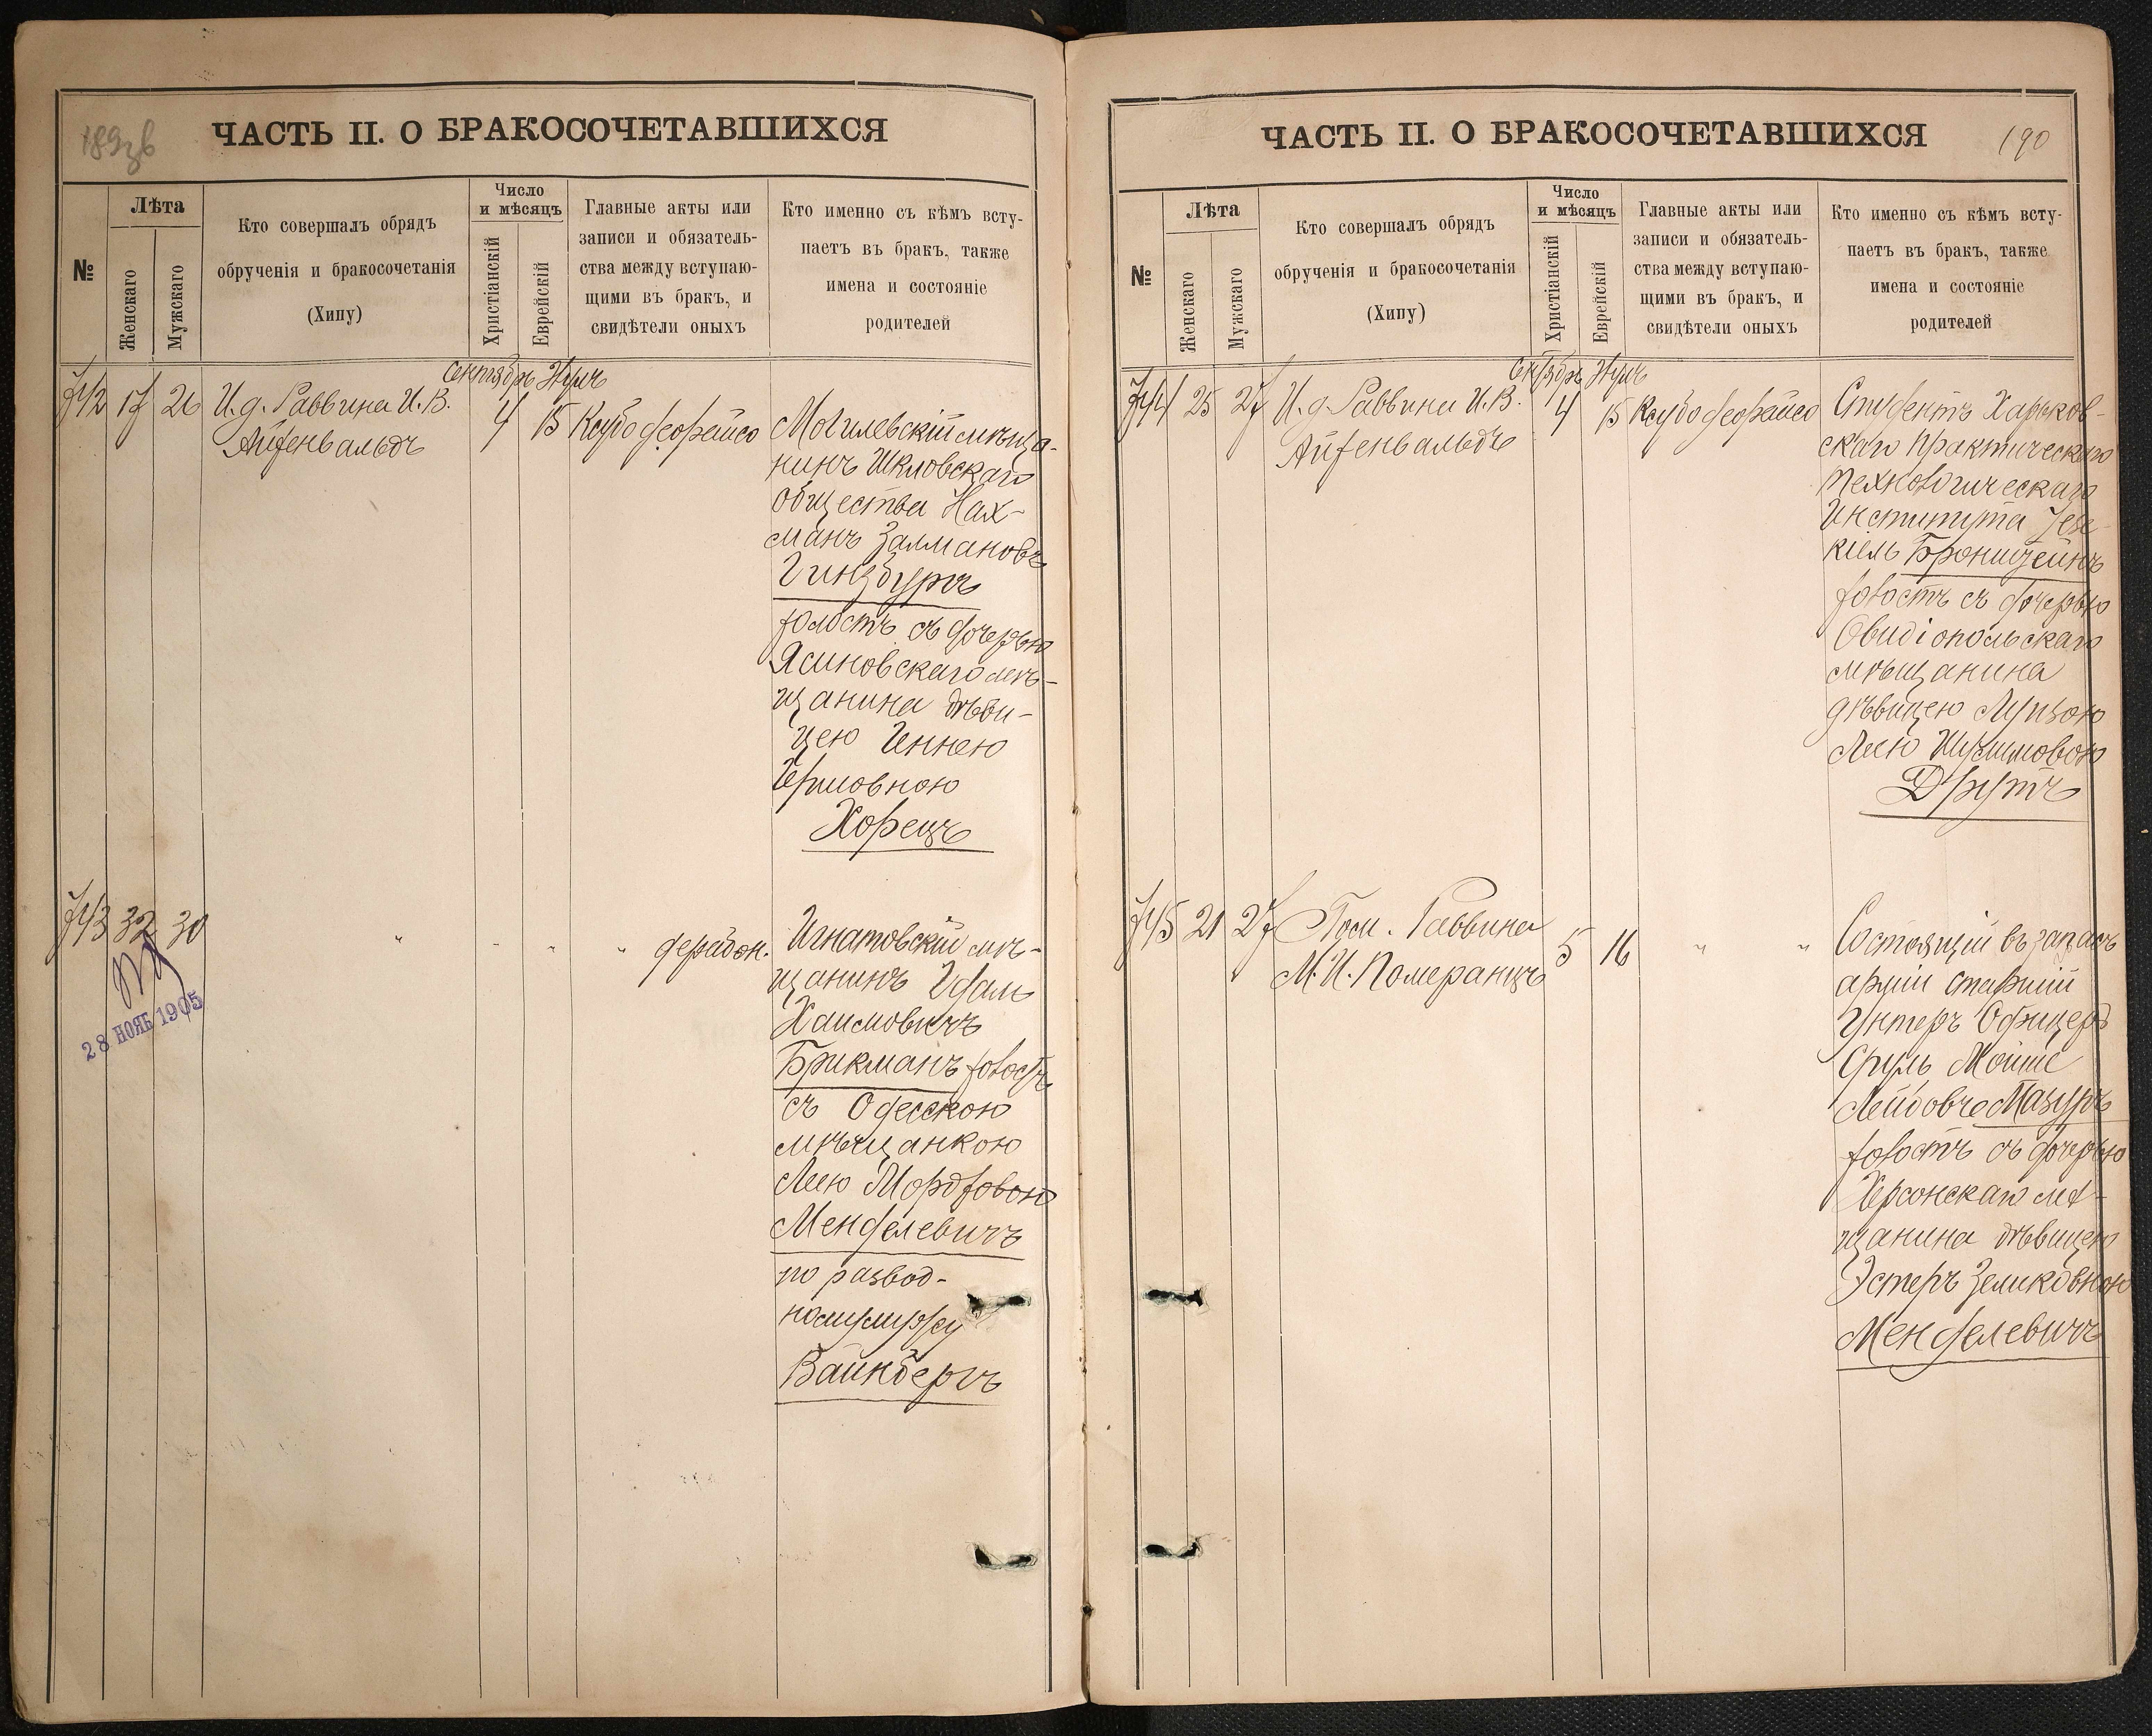 ЧАСТЬ II. О БРАКОСОЧЕТАВШИХСЯ
№
Лѣта
Женскаго
Мужскаго
Кто совершалъ обрядъ
обрученія и бракосочетанія
(Хипу)
Число
и мѣсяцъ
Христіанскій
Еврейскій
Главные акты или
записи и обязатель-
ства между вступаю-
щими въ бракъ, и
свидѣтели оныхъ
Кто именно съ кѣмъ всту-
паетъ въ бракъ, также
имена и состояніе
родителей
Сентябрь
742 17 26 И. д. Раввина И. В.
Айзенвальдъ
4 15
Могилевскій мѣща-
нинъ Шкловскаго
общества Нах-
манъ Залмановъ
Гинзбургъ
холостъ съ дочерью
Ясиновскаго мѣ-
щанина дѣви-
цею
Хорецъ
743 32 30
28 НОЯБ 1905
Игнатовскій мѣ-
щанинъ
Хаимовичъ
Брикманъ холостъ
съ Одесскою
мѣщанкою
Леею
Менделевичъ
по развод-
ному мужу
Вайнбергъ
ЧАСТЬ II. О БРАКОСОЧЕТАВШИХСЯ
190
№
Лѣта
Женскаго
Мужскаго
Кто совершалъ обрядъ
обрученія и бракосочетанія
(Хипу)
Число
и мѣсяцъ
Христіанскій
Еврейскій
Главные акты или
записи и обязатель-
ства между вступаю-
щими въ бракъ, и
свидѣтели оныхъ
Кто именно съ кѣмъ всту-
паетъ въ бракъ, также
имена и состояніе
родителей
744 25 27 И. д. Раввина И. В.
Айзенвальдъ
4 15
Студентъ Харьков-
скаго Практическаго
Технологическаго
Института Іезе-
кіель Бронштейнъ
холостъ съ дочерью
Овидіопольскаго
мѣщанина
дѣвицею
Леею
Друтъ
745 21 27 Пом. Раввина
М. И. Померанцъ
5 16
Состоящій въ запасѣ
арміи старшій
Унтеръ Офицеръ
Сруль Мойше
Лейбовъ Мазуръ
холостъ съ дочерью
Херсонскаго мѣ-
щанина дѣвицею
Эстеръ Зеликовною
Менделевичъ